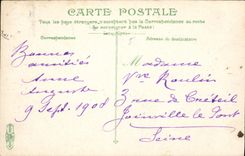 CARTE POSTALE
Tous les pays étrangers n'acceptent pas la Correspondance au recto
Se renseigner à la Poste
Correspondance
Adresse du destinataire
Bonnes
amitiés
Anne
Auguste
9 Sept. 1908
Madame
Vve Roulin
3 rue de Créteil
Joinville le Pont
Seine